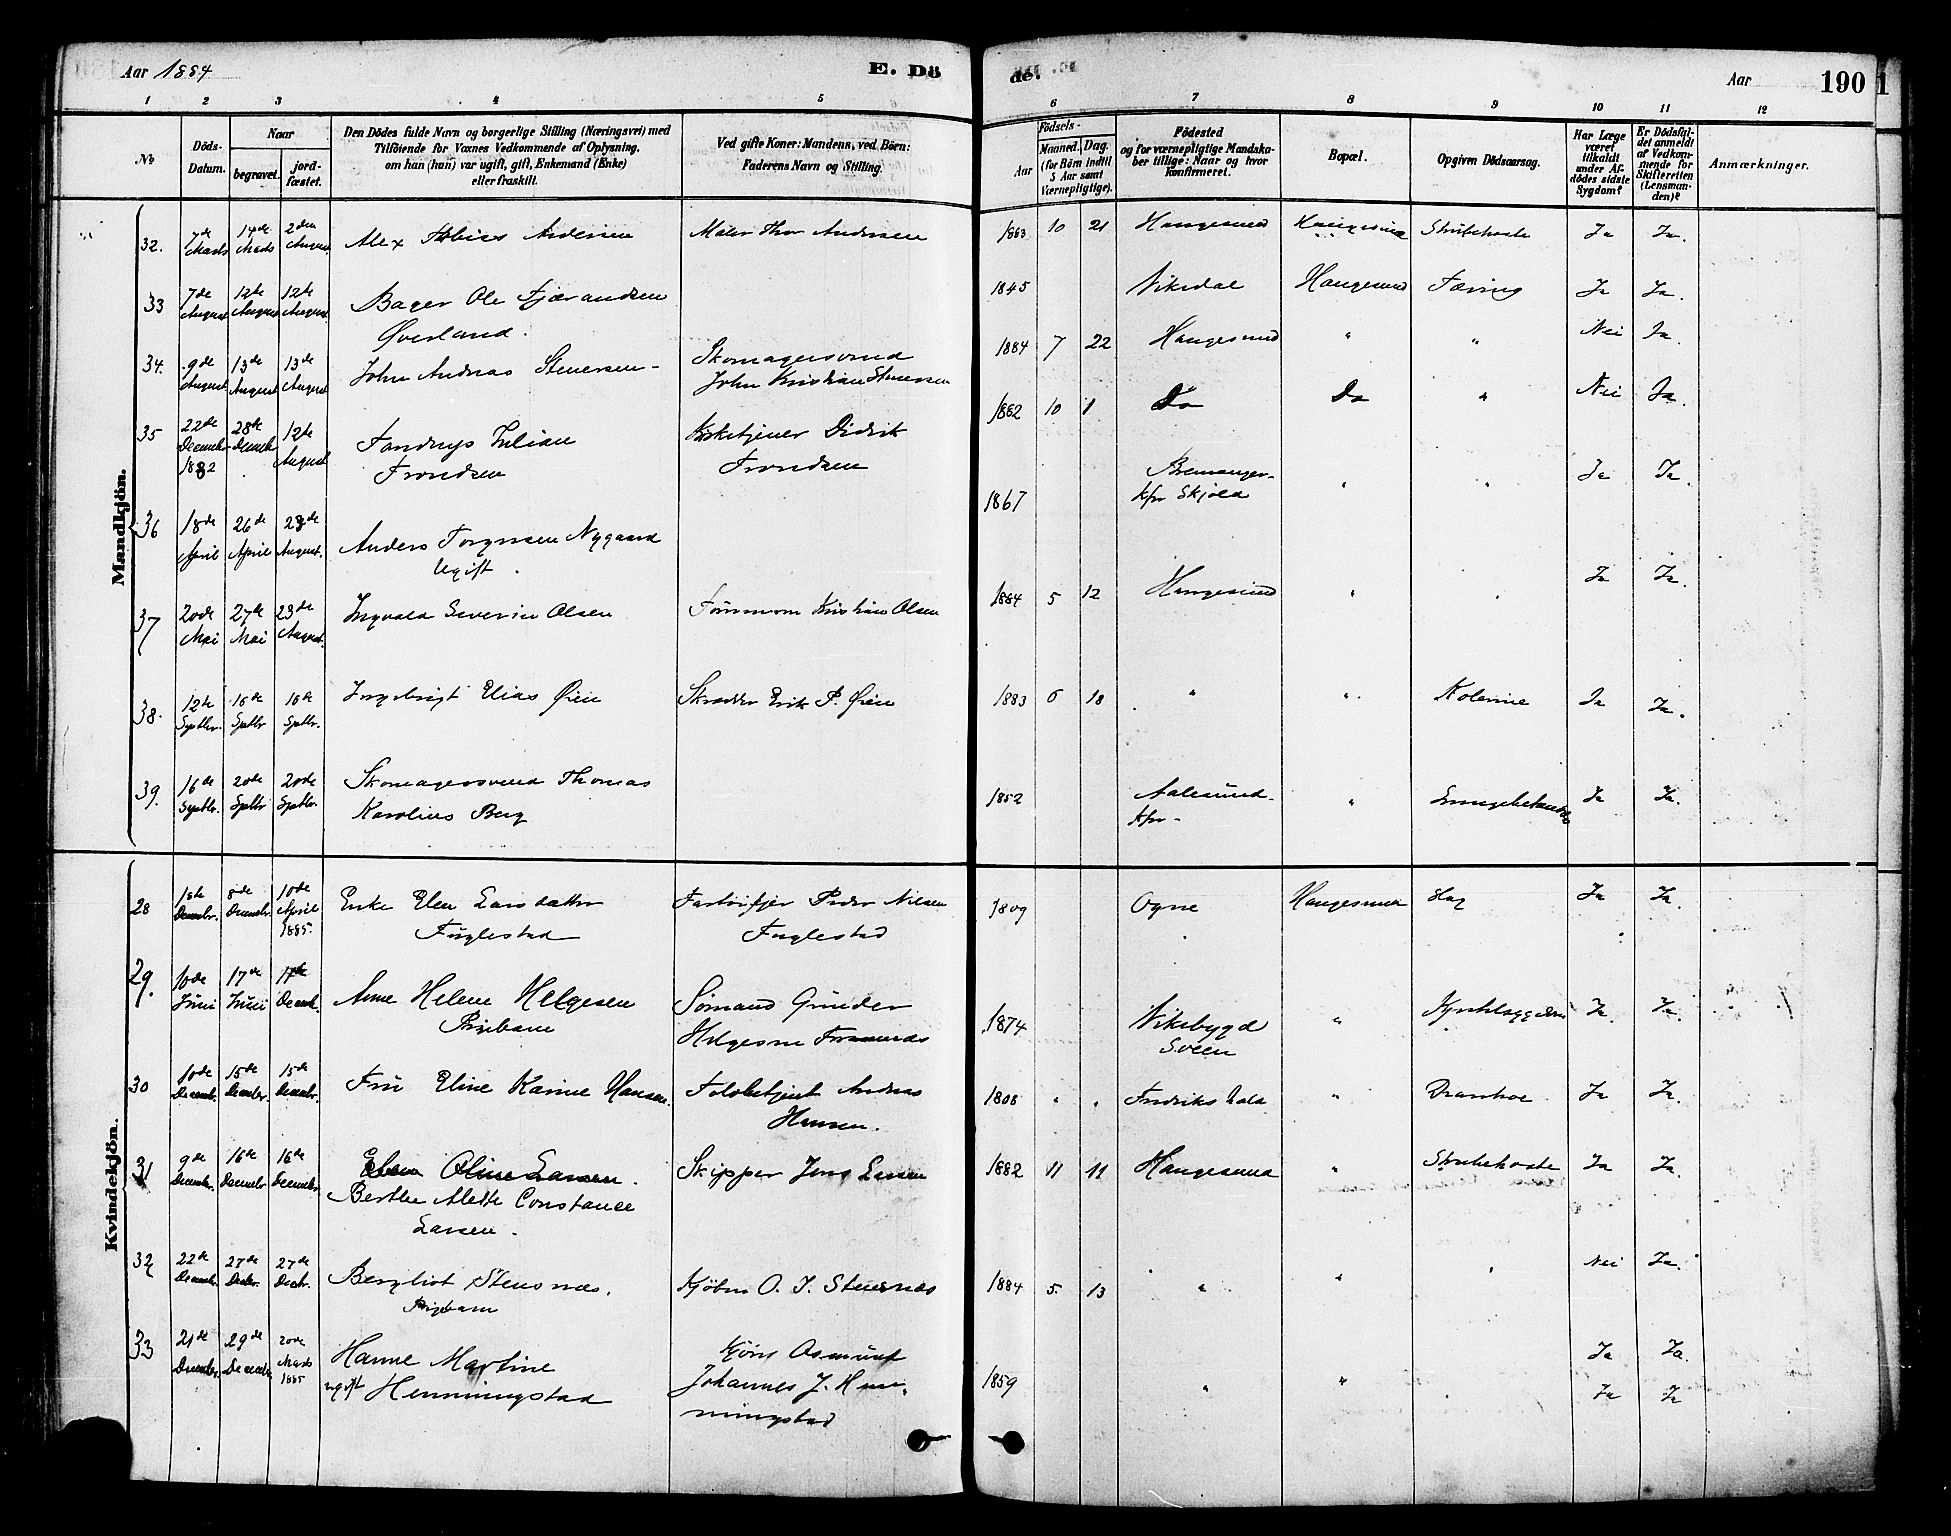 Aar 1884
E. Dö
de.
Aar
190
1 2 3 4 5
6 7 8 9 10 11 12
No
Döds-
Datum.
Naar
begravet.
jord-
fæstet.
Den Dödes fulde Navn og borgerlige Stilling (Næringsvei) med
Tilföiende for Voxnes Vedkommende af Oplysning,
om han (hun) var ugift, gift, Enkemand (Enke)
eller fraskilt.
Ved gifte Koner: Mandens, ved Börn:
Faderens Navn og Stilling.
Födsels-
Aar
Maaned. Dag.
(for Börn indtil
5 Aar samt
Værnepligtige).
Födested
og for værnepligtige Mandska-
ber tillige: Naar og hvor
konfirmeret.
Bopæl.
Opgiven Dödsaarsag.
Har Læge
været
tilkaldt
under Af-
dödes sidste
Sygdom?
Er Dödsfal-
det anmeldt
af Vedkom-
mende for
Skifteretten
(Lensman-
den)?
Anmærkninger.
Mandkjön.
32. 7de Marts 14de Marts 2den August. Alex Tobias Andersen Maler Thor Andersen 1883 10 21 Haugesund Haugesund Strubehoste Ja Ja.
33 7de August 12te August 12te August. Bager Ole Fjærandsen 1845 Vikedal Haugesund Tæring Ja Ja.
Øverland.
34. 9de August 13de August 13de August John Andreas Stenersen Skomagersvend 1884 7 22 Haugesund " " Nei Ja.
John Kristian Stenersen
35 22de December 1882 28de December 12te August Julian Didrik 1882 10 1 Do Do " Nei Ja.
Trondsen Trondsen
36 18de April 26de April 23de August. Anders Nygaard 1867 Skjold " " Ja Ja.
Ugift.
37 20de Mai 27de Mai 23de August. Ingvald Severin Olsen Kristian Olsen 1884 5 12 Haugesund " Ja Ja.
38. 12te Septbr. 16de Septbr 16de Septbr. Ingebrigt Elias Øien Skrædder Erik P. Øien 1883 6 18 " " Kolerine Ja Ja.
39. 16de Septbr. 20de Septbr 20de Septbr. Skomagersvend Thomas 1852 Aalesund " Ja Ja.
Karolius Berg
Kvindekjön.
28 8de Decembr. 10de April 1885. Enke Elen Larsdatter Peder Nilsen 1809 Ogne Haugesund Slag Ja Ja.
Fuglestad Fuglestad
29. 10de Juni 17de Juni Decembr. Anne Helene Helgesen Sømand Gunder 1874 Vikebygd " Ja Ja.
Pigebarn Helgesen Sveen
30 10de Decembr. 15de Decembr. 15de Decembr. Fru Eline Karine Hansen. Toldbetjent Andreas 1808 " " Fredrikshald " Ja Ja.
Hansen.
31 9de Decembr. 16de Decembr 16de Decembr. Oline Larsen. Skipper Jens Larsen 1882 11 11 Haugesund " Strubehoste Ja Ja.
Berthe Alette Constance
Larsen.
32 22de Decembr. 27de Decbr. 27de Decbr. Bergliot Stensnæs. Kjøbm O. J. Stensnæs 1884 5. 13 " " " Nei Ja.
Pigebarn
33 21de Decembr. 29de Decembr. 20de Marts 1885 Hanne Martine 1859 " " Ja Ja.
ugift Henningstad Johannes J. Hen- Ja Ja
ningstad